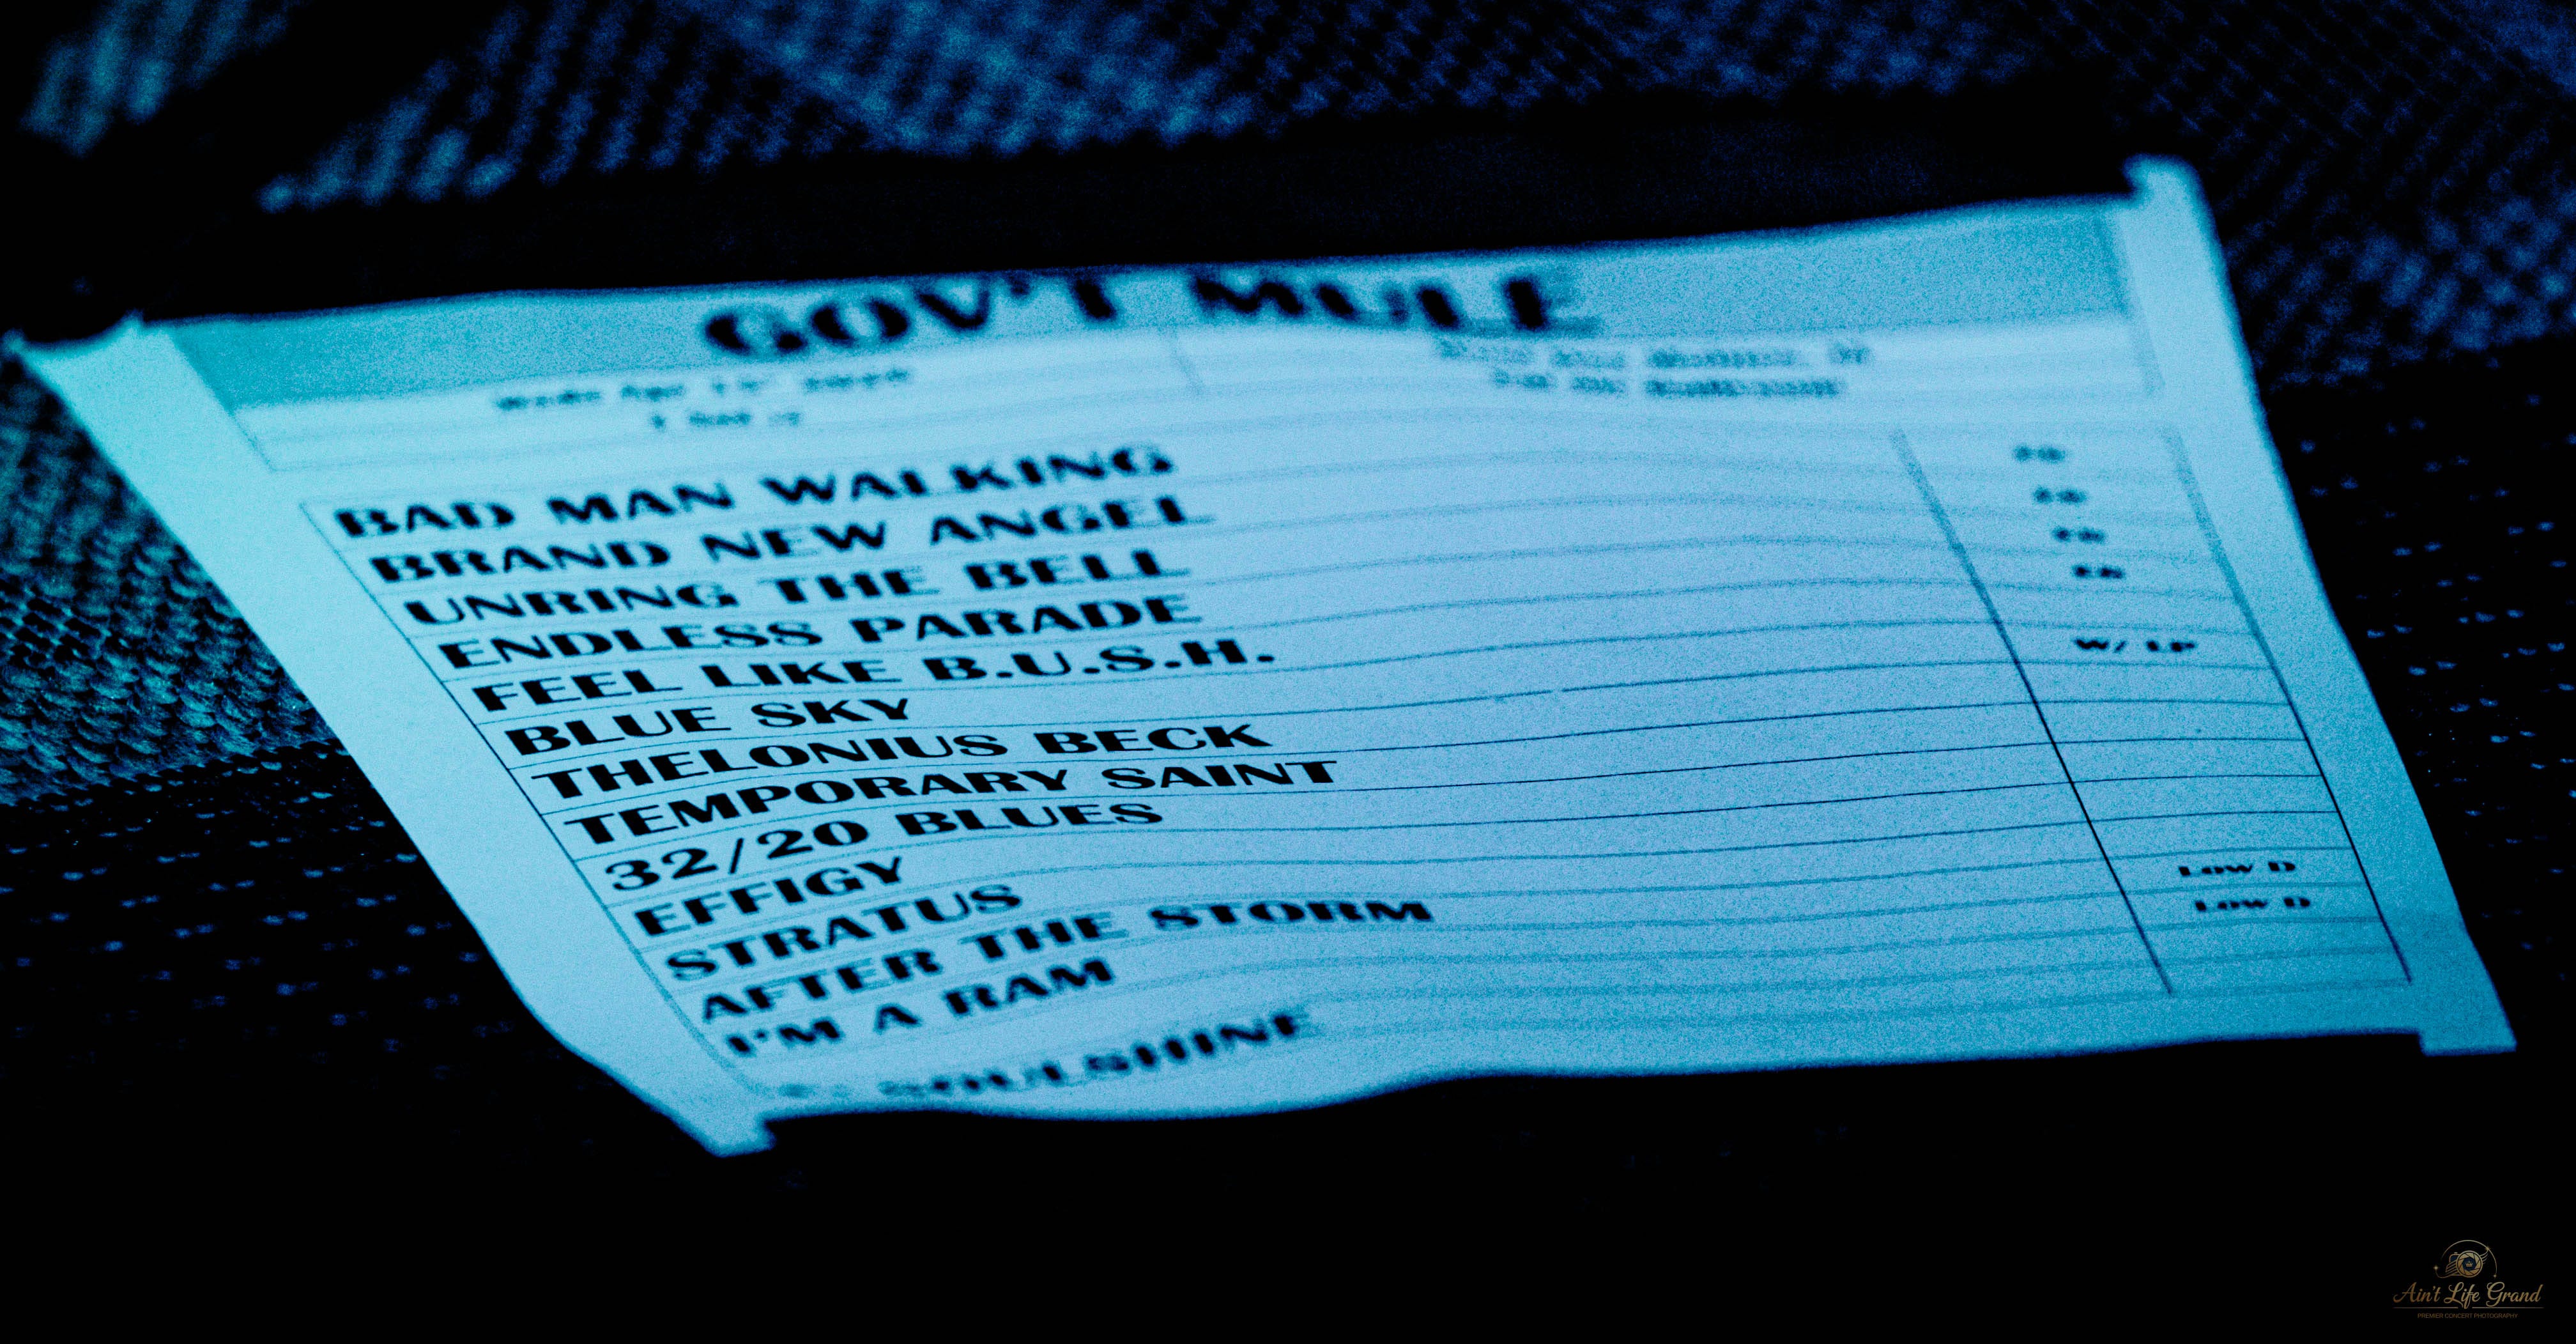 GOV'T MULE
1 Set
BAD MAN WALKING
BRAND NEW ANGEL
UNRING THE BELL
ENDLESS PARADE
FEEL LIKE B.U.S.H.
BLUE SKY W/ LP
THELONIUS BECK
TEMPORARY SAINT
32/20 BLUES
EFFIGY
STRATUS LOW D
AFTER THE STORM LOW D
I'M A RAM
E: SOULSHINE
Ain't Life Grand
PREMIER CONCERT PHOTOGRAPHY